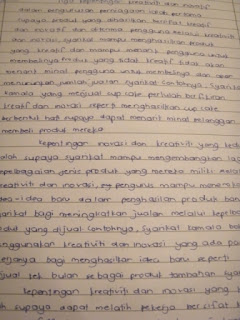 tiga kepentingan kreativiti dan inovatif
dalam pengurusan perniagaan ialah pertama
supaya produk yang dihasilkan bersifat kreatif
dan inovatif dan diterima pengguna. Melalui kreativiti
dan inovasi, syarikat mampu menghasilkan produk
yang kreatif dan mampu menarik pengguna untuk
membelinya. Produk yang tidak kreatif tidak akan
menarik minat pengguna untuk membelinya dan akan
menurunkan jumlah jualan syarikat. Contohnya, syarikat
Kamala yang menjual cup cake perlulah berfikiran
kreatif dan inovasi seperti menghasilkan cup cake
berbentuk hati supaya dapat menarik minat pelanggan
membeli produk mereka.
Kepentingan inovasi dan kreativiti yang kedua
ialah supaya syarikat mampu mengembangkan lagi
mempelbagaikan jenis produk yang mereka miliki. Melalui
kreativiti dan inovasi, pengurus mampu
idea-idea baru dalam penghasilan produk baru
syarikat bagi meningkatkan jualan melalui kepelbagaian
produk yang dijual. Contohnya, syarikat Kamala boleh
menggunakan kreativiti dan inovasi yang ada pada
pekerjanya bagi menghasilkan idea baru seperti
menjual kek bulan sebagai produk tambahan
Kepentingan kreativiti dan inovasi yang
ialah supaya dapat melatih pekerja bersifat